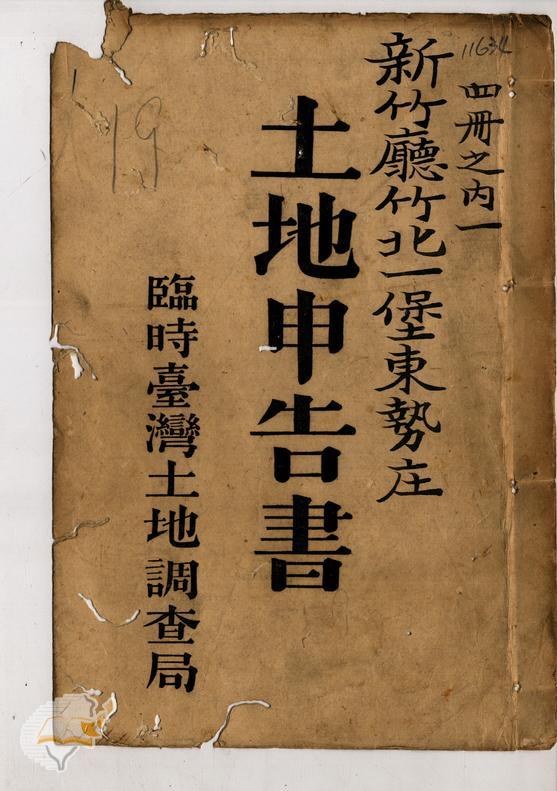 四冊之內一
新竹廳竹北一堡東勢庄
土地申告書
臨時臺灣土地調查局
19